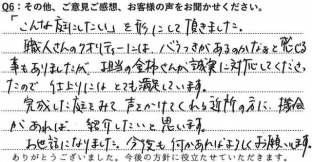 Q6：その他、ご意見ご感想、お客様の声をお聞かせください。
「こんな庭にしたい」を形にして頂きました。
職人さんのクオリティーには、バラつきがあるのかなぁと感じる
事もありましたが、担当の金柿さんが誠実に対応してくださっ
たので仕上りにはとても満足しています。
完成した庭をみて声をかけてくれる近所の方に、機会
があれば、紹介したいと思います。
お世話になりました。今後も何かあればよろしくお願います。
ありがとうございました。今後の方針に役立たせていただきます。